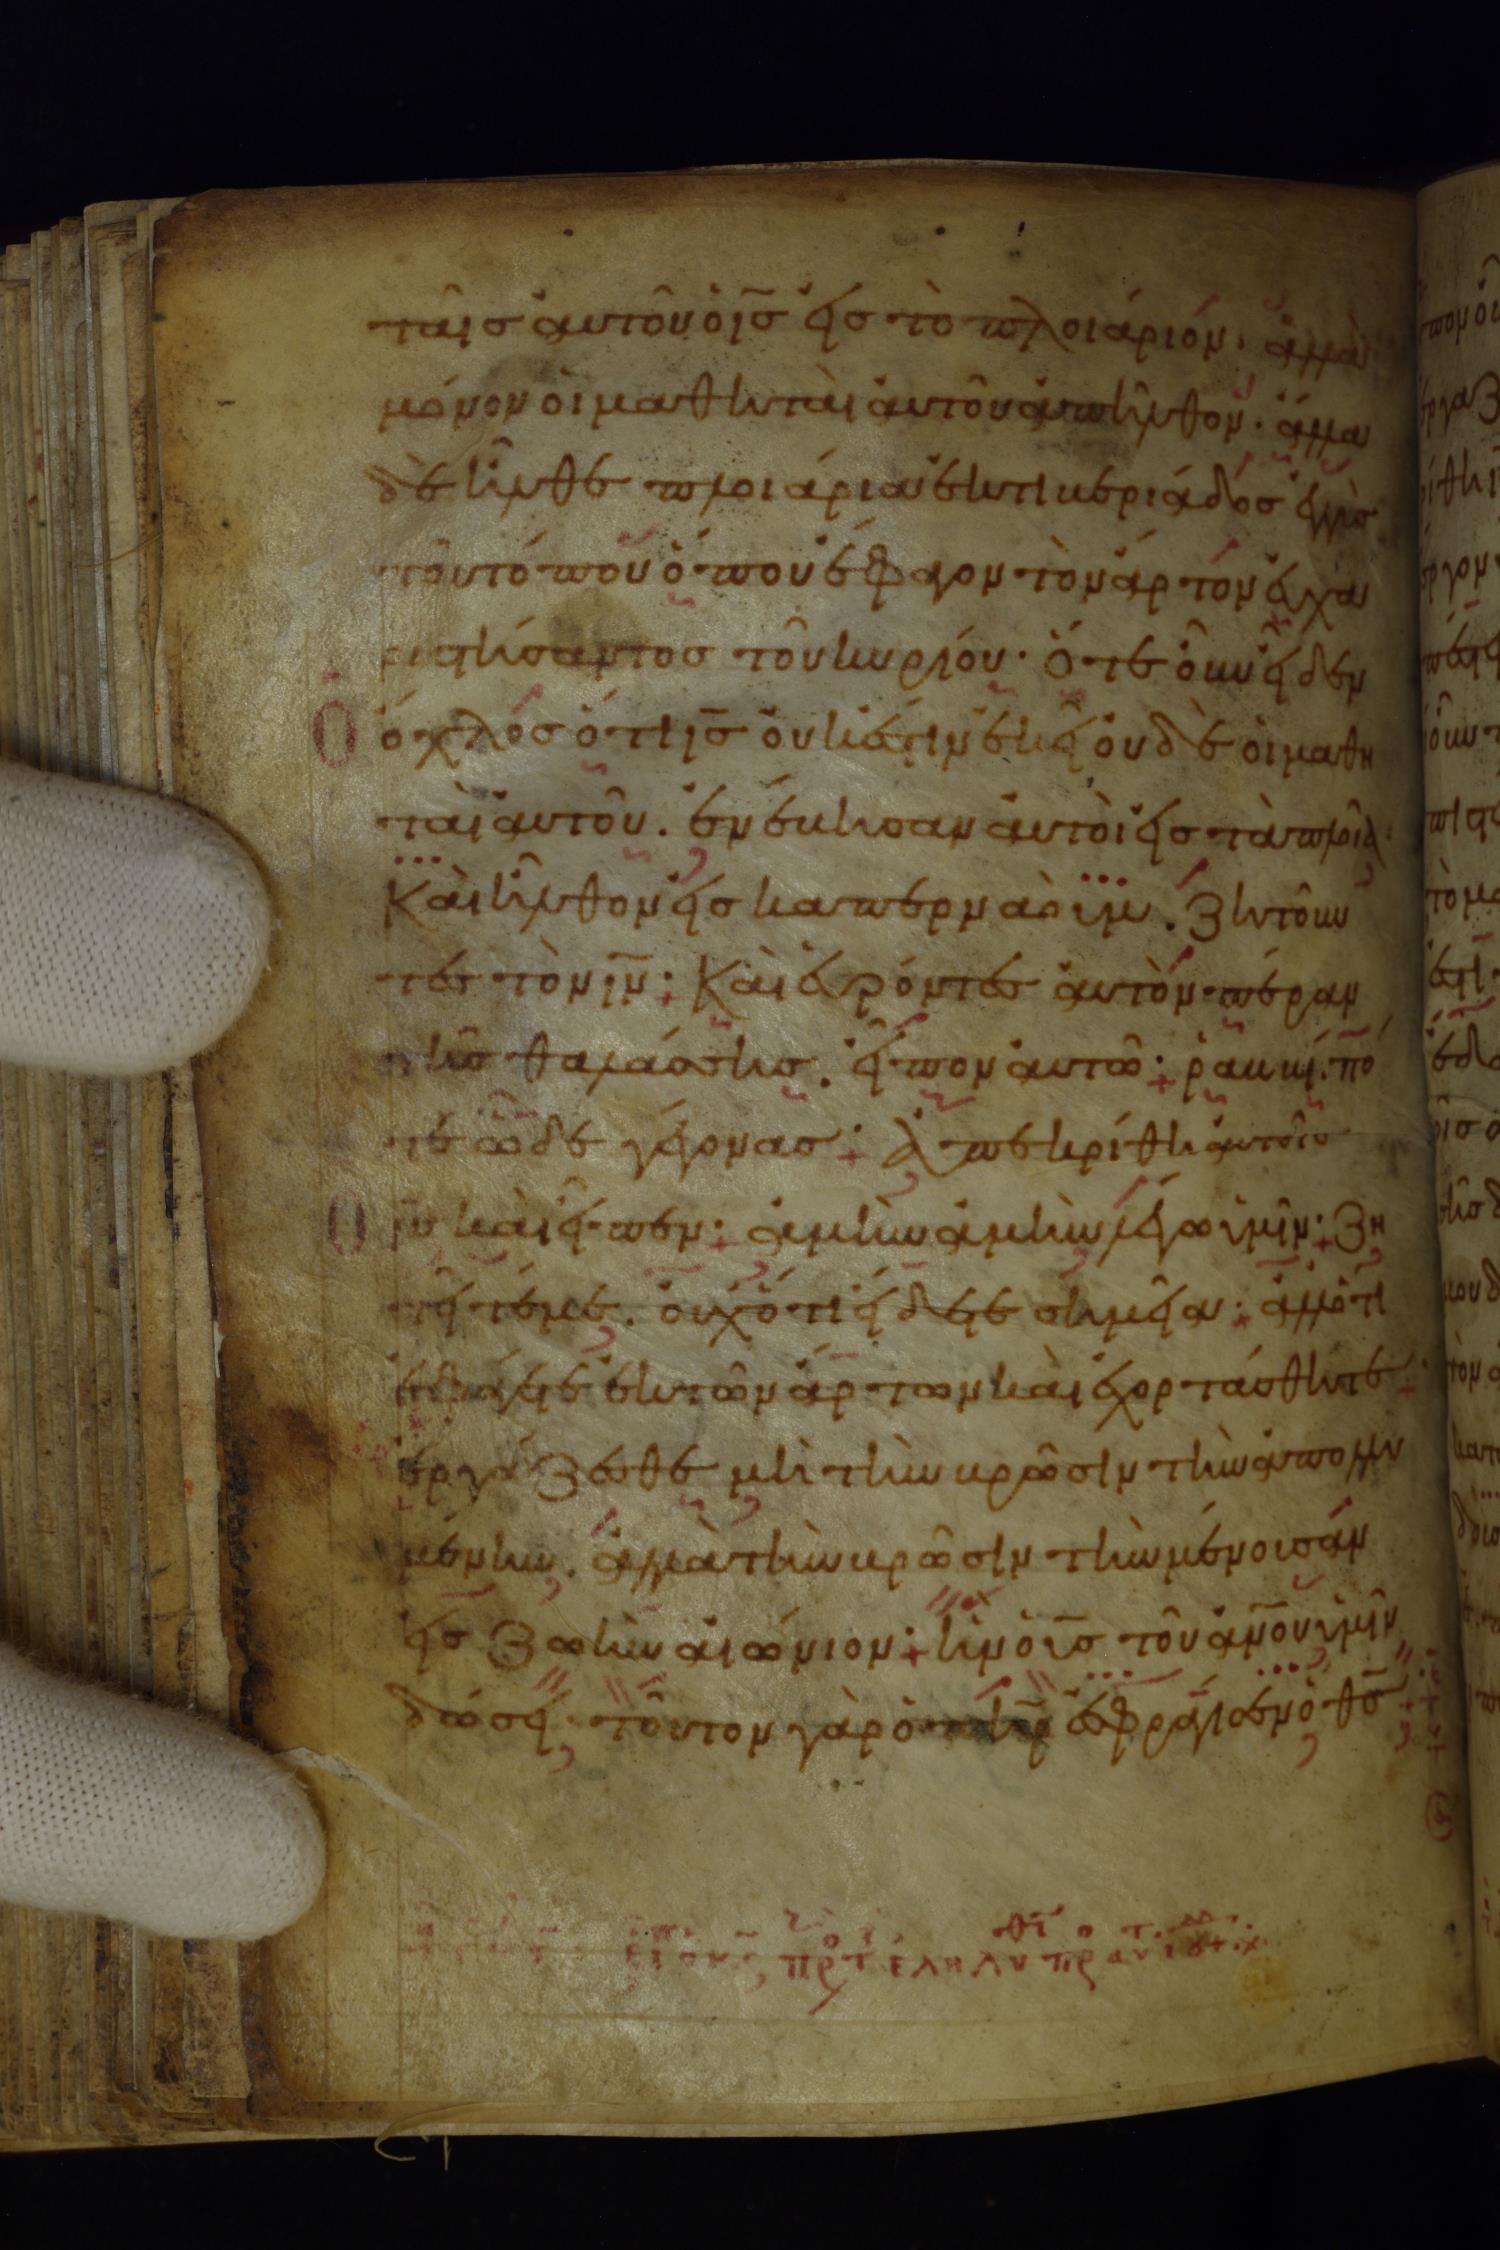 ταῖς αὐτοῦ ὁ ις̅ εἰς τὸ πλοιάριόν· ἀλλὰ
μόνον οἱ μαθηταὶ αὐτοῦ ἀπῆλθον· ἄλλα
δὲ ἦλθε πλοιάρια ἐκ τιβεριάδος ἐγγὺς
τοῦ τόπου ὅπου ἔφαγον τὸν ἄρτον εὐχα
ριστήσαντος τοῦ κυρίου· ὅτε οὖν εἶδεν
ὁ ὄχλος ὅτι ις̅ οὐκ ἔστιν ἐκεῖ οὐδὲ οἱ μαθη
ταὶ αὐτοῦ. ἐνέβησαν αὐτοὶ εἰς τὰ πλοῖα·
Καὶ ἦλθον εἰς καπερναούμ. ζητοῦν
τες τὸν ιν̅· Καὶ εὑρόντες αὐτὸν πέραν
τῆς θαλάσσης. εἶπον αὐτῶ· ῥαββί. πό
τε ὧδε γέγονας· Ἀπεκρίθη αὐτοῖς
ὁ ις̅ καὶ εἶπεν· ἀμὴν ἀμὴν λέγω ὑμῖν· ζη
τεῖτέ με. οὐχ ὅτι εἴδετε σημεῖα· ἀλλ' ὅτι
ἐφάγετε ἐκ τῶν ἄρτων καὶ ἐχορτάσθητε·
ἐργάζεσθε μὴ τὴν βρῶσιν τὴν ἀπολλυ
μένην. ἀλλὰ τὴν βρῶσιν τὴν μένουσαν
εἰς ζωὴν αἰώνιον· ἣν ὁ υἱς̅ τοῦ ἀν̅ου ὑμῖν
δώσει· τοῦτον γὰρ ὁ πηρ̅ ἐσφράγισεν ὁ θς̅